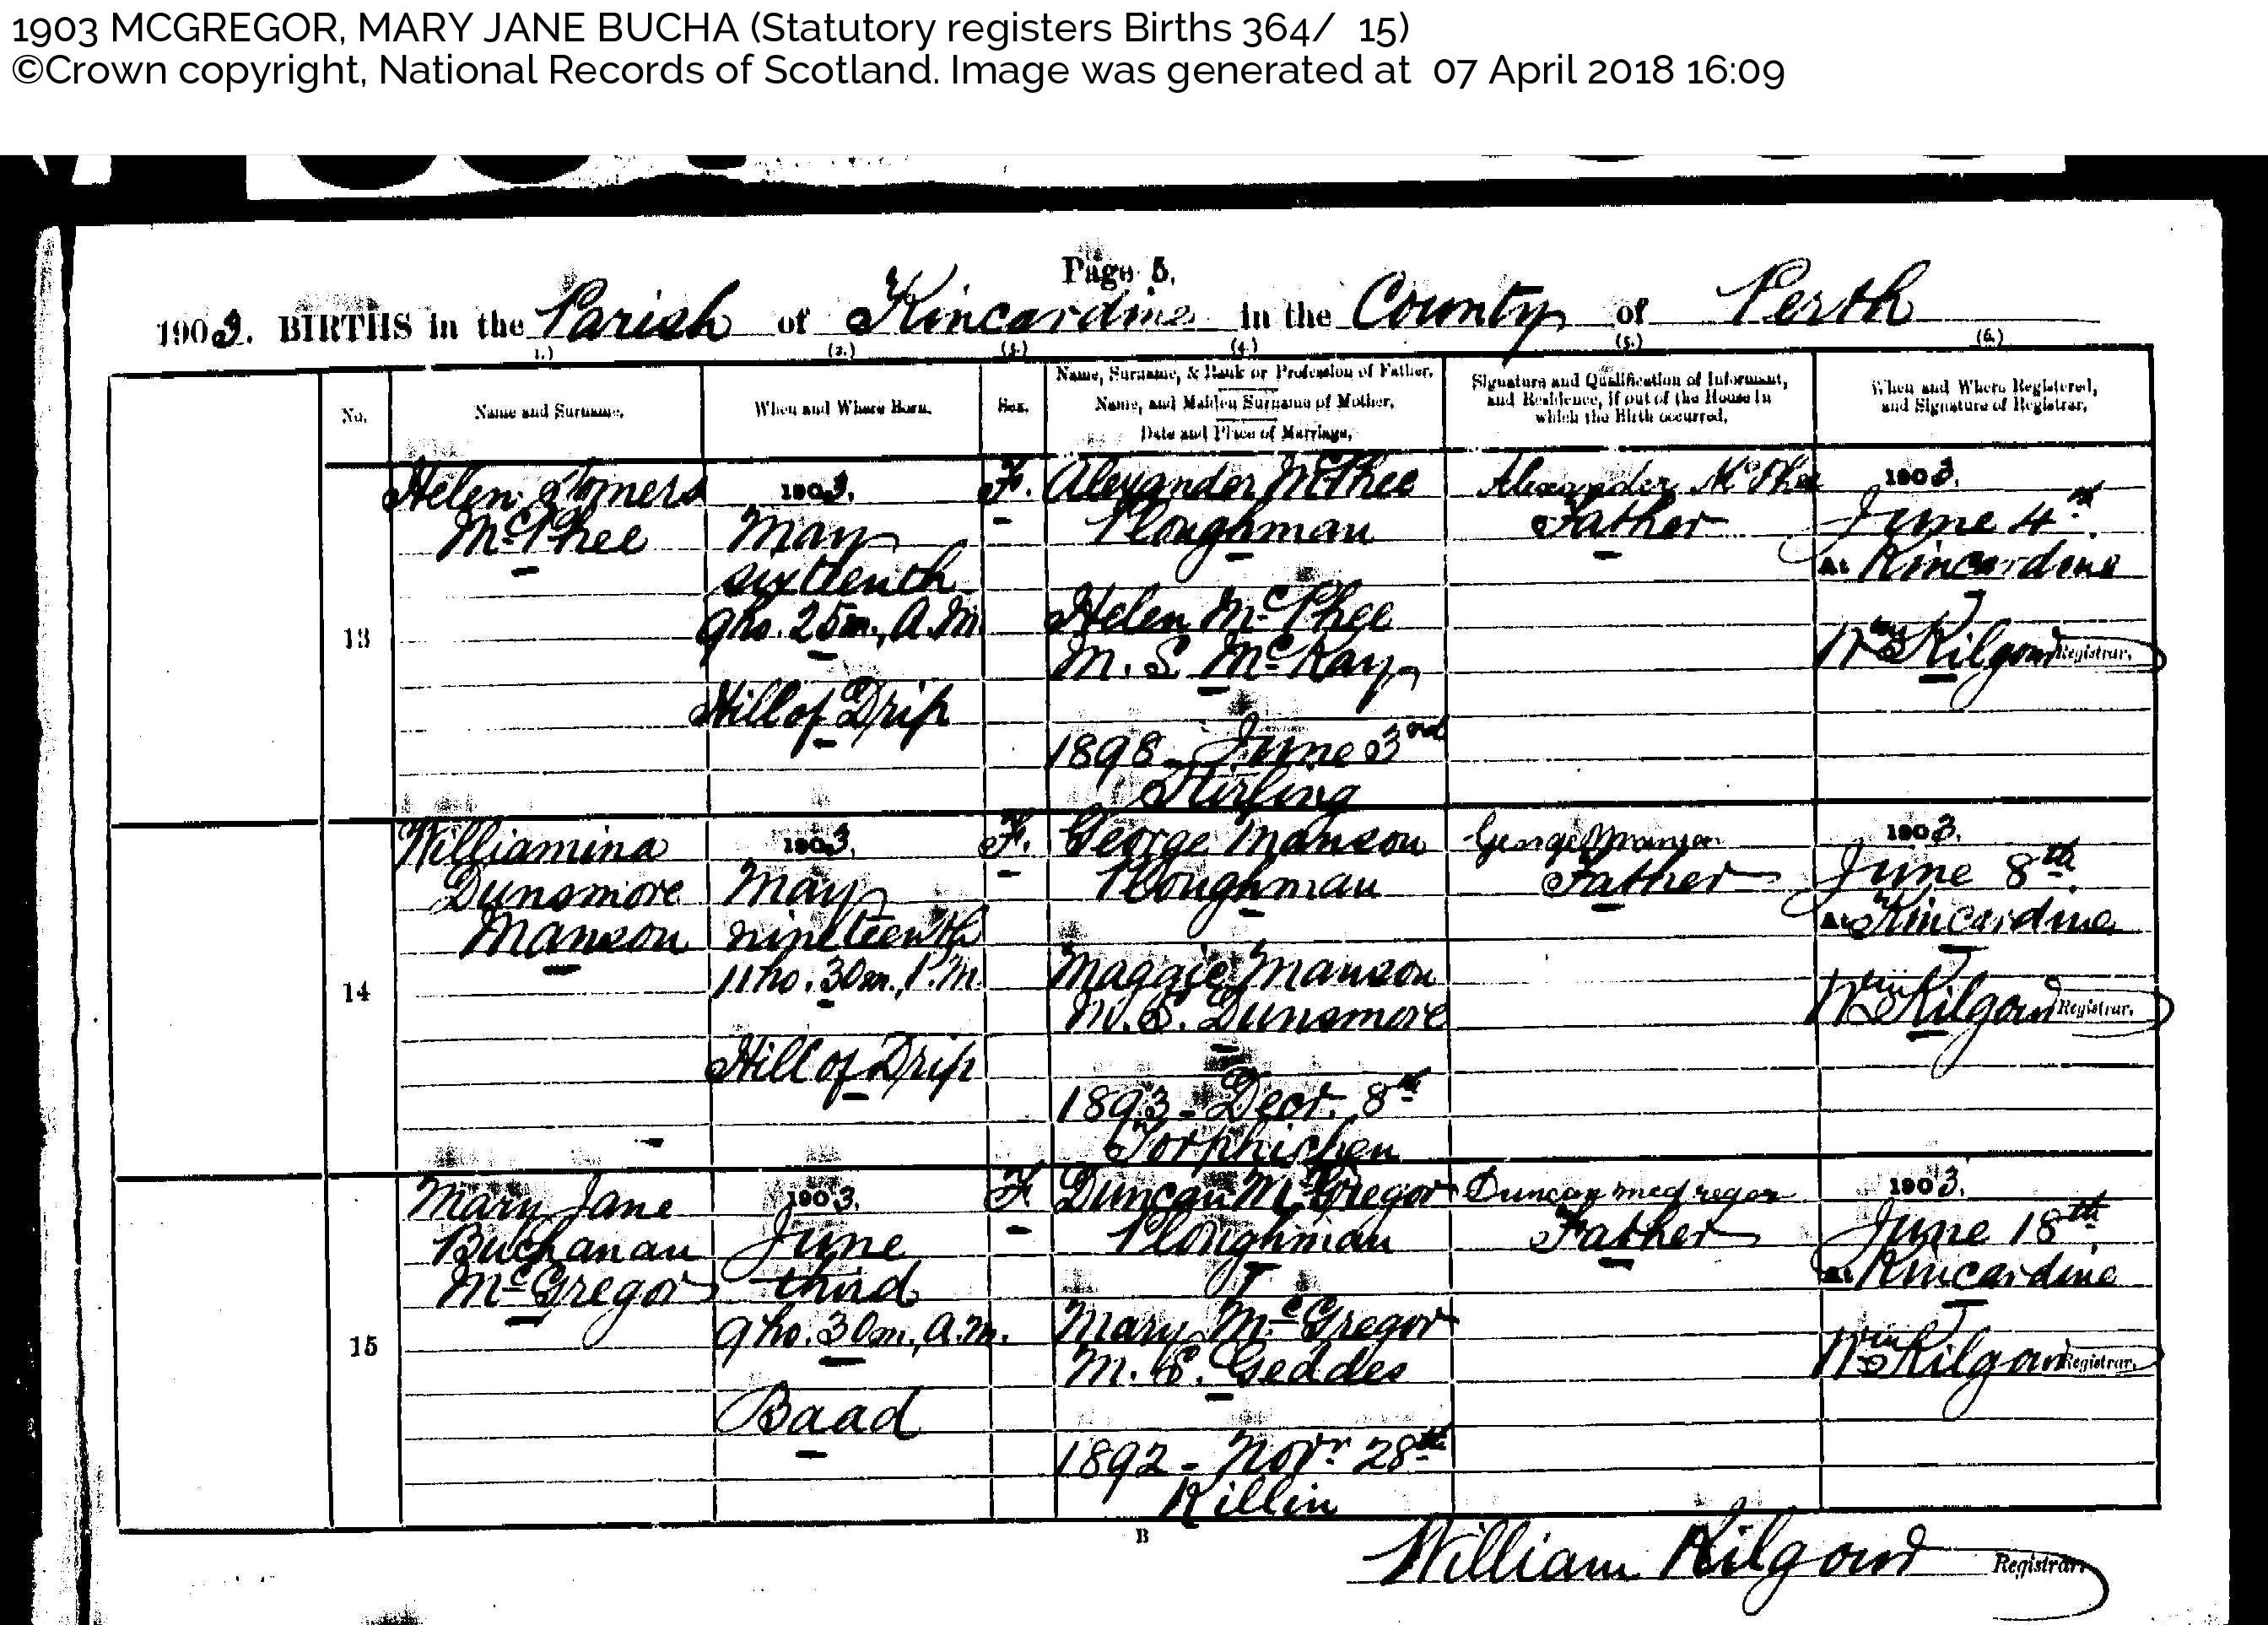 1903 MCGREGOR, MARY JANE BUCHA (Statutory registers Births 364/ 15)
©Crown copyright, National Records of Scotland. Image was generated at 07 April 2018 16:09
Page 5.
1903. BIRTHS in the Parish of Kincardine in the County of Perth
(1.) (2.) (3.) (4.) (5.) (6.)
No.
Name and Surname.
When and Where Born.
Sex.
Name, Surname, & Rank or Profession of Father.
Name, and Maiden Surname of Mother.
Date and Place of Marriage.
Signature and Qualification of Informant,
and Residence, if out of the House in
which the Birth occurred.
When and Where Registered,
and Signature of Registrar.
13
Helen Somers
McPhee
1903.
May
sixteenth
9ho. 25m., A.M.
Hill of Drip
F.
Alexander McPhee
Ploughman
Helen McPhee
M. S. McKay
1898 - June 3rd
Stirling
Alexander McPhee
Father
1903.
June 4th.
At Kincardine
Wm Kilgour Registrar.
14
Williamina
Dunsmore
Manson
1903.
May
nineteenth
11ho. 30m., P.M.
Hill of Drip
F.
George Manson
Ploughman
Maggie Manson
M. S. Dunsmore
1893 - Decr. 8th
Torphichen
George Manson
Father
1903.
June 8th.
At Kincardine
Wm Kilgour Registrar.
15
Mary Jane
Buchanan
McGregor
1903.
June
third
9ho. 30m., A.M.
Baad
F
Duncan McGregor
Ploughman
Mary McGregor
M. S. Geddes
1892 - Novr 28th
Killin
Duncan McGregor
Father
1903.
June 18th.
At Kincardine
Wm Kilgour Registrar.
B
William Kilgour Registrar.